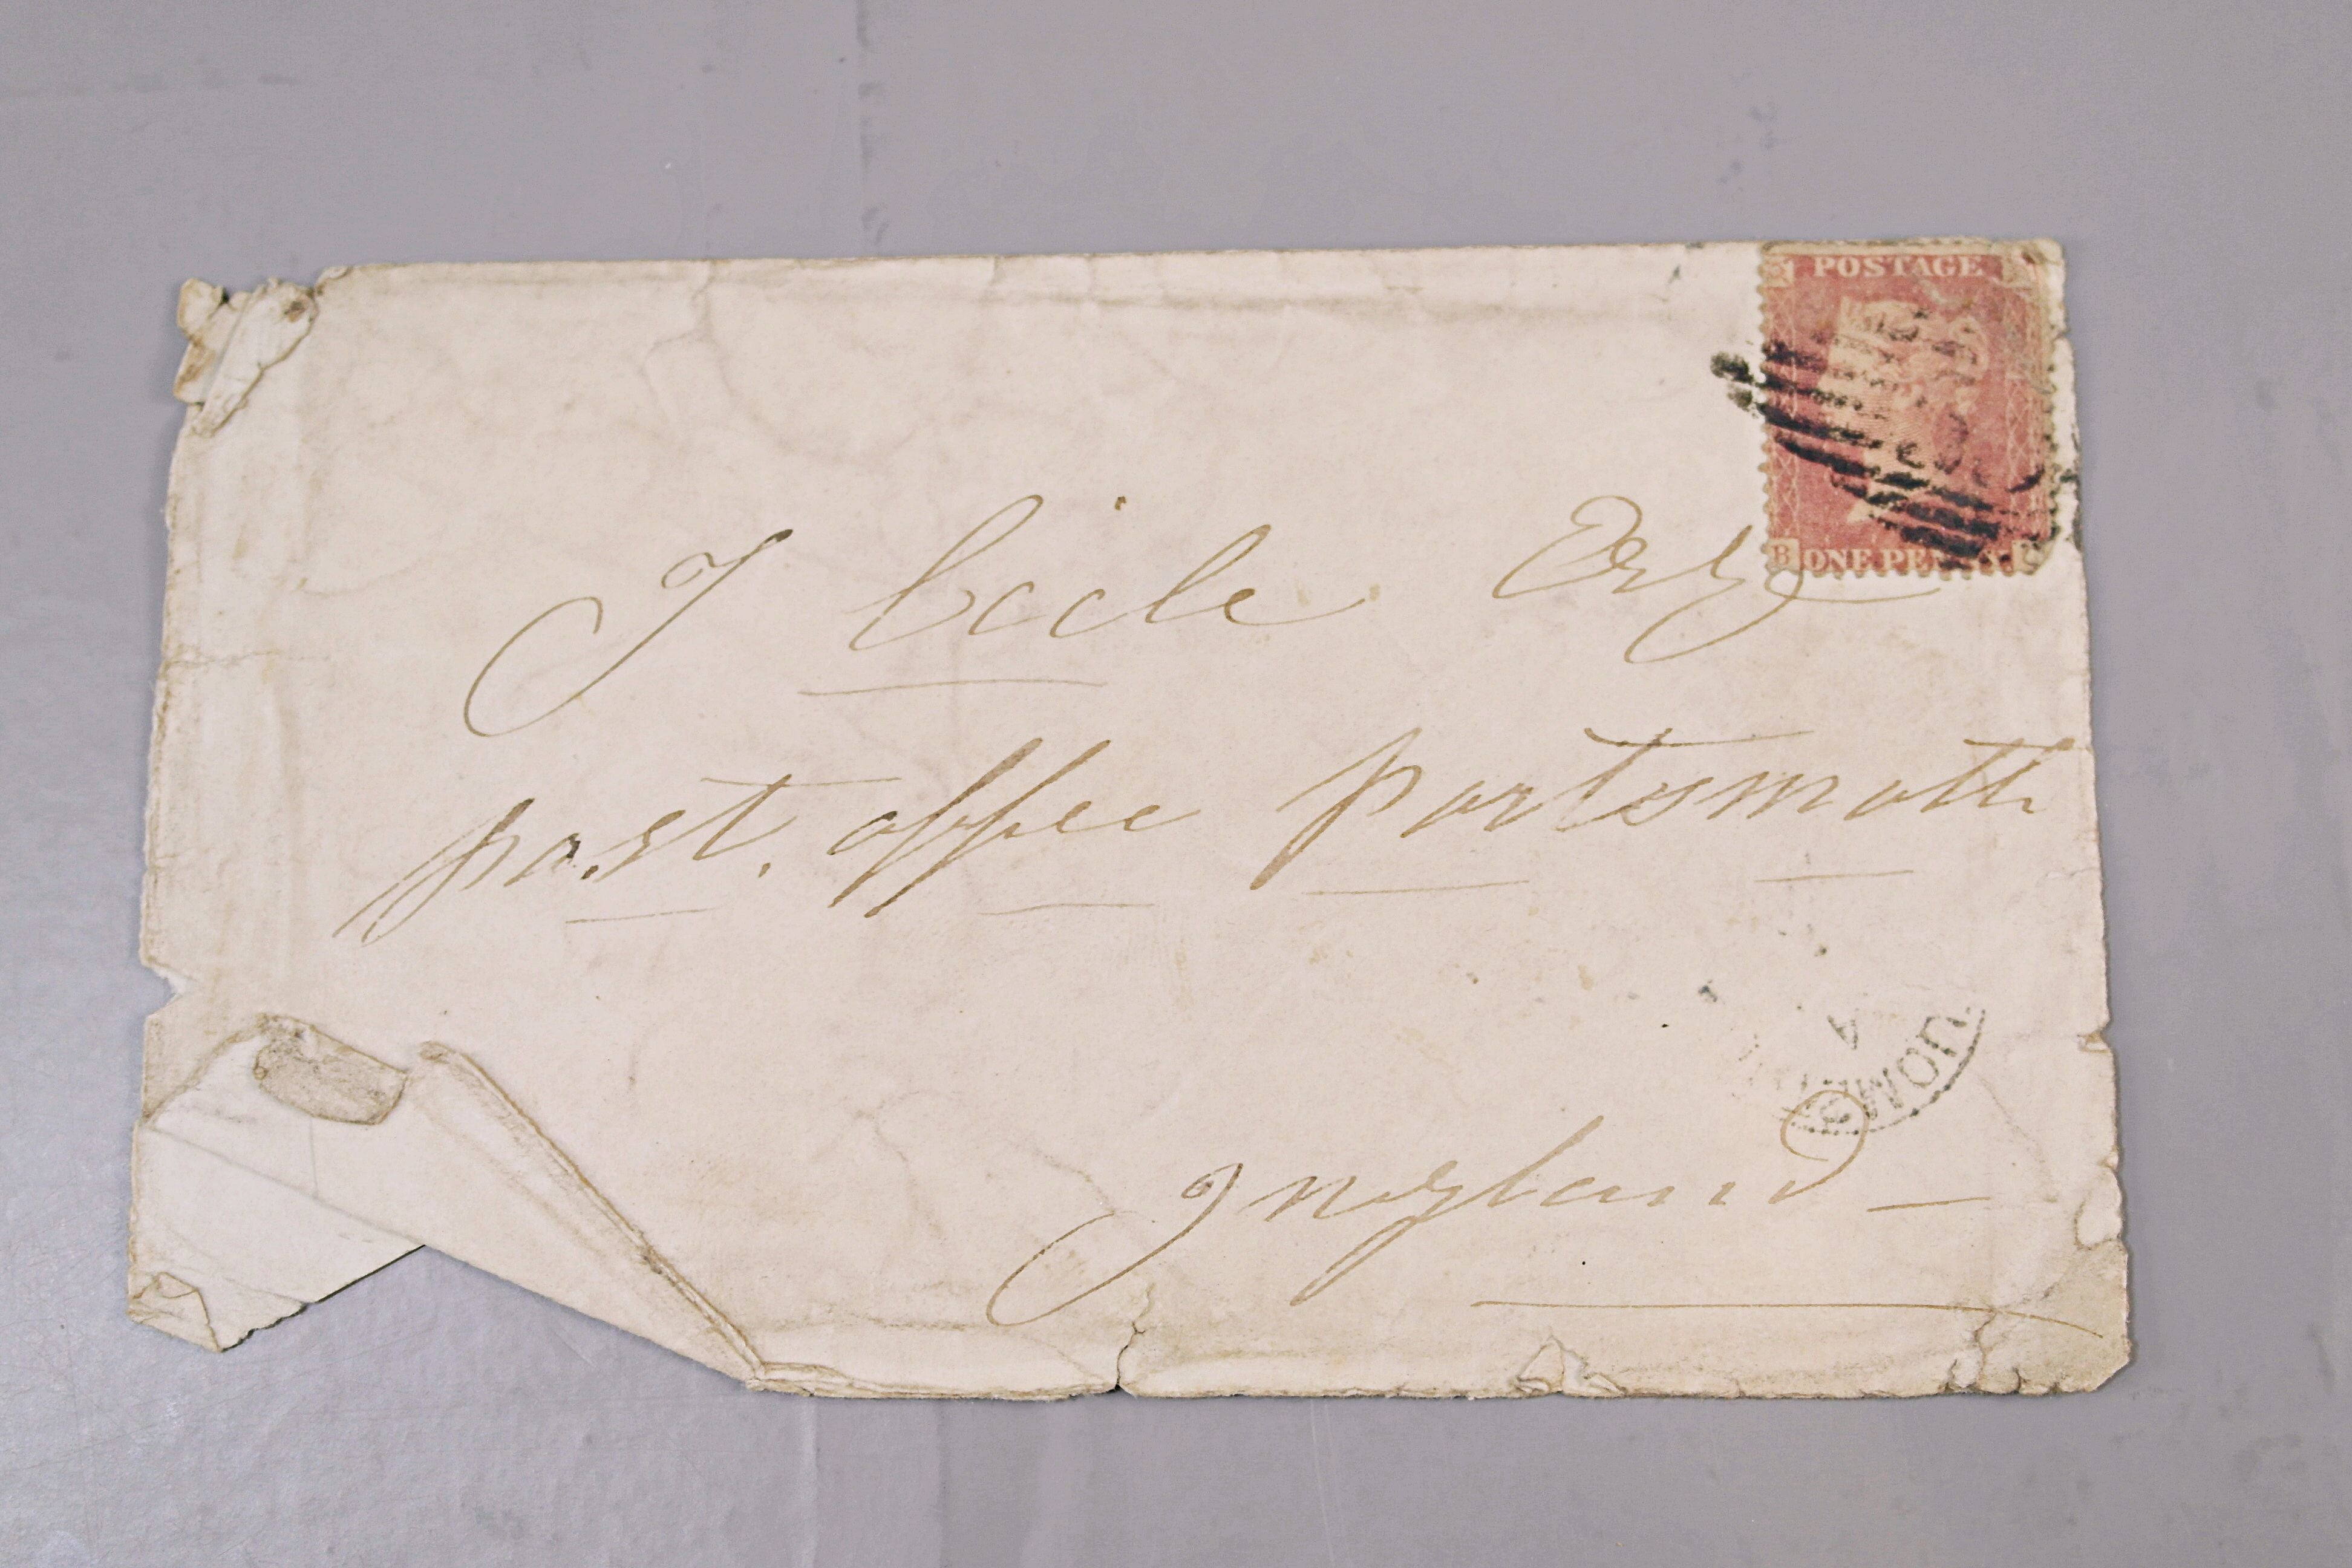 POSTAGE
B ONE PENNY
J Cecile Esq
post. office portsmoth
Ingland —